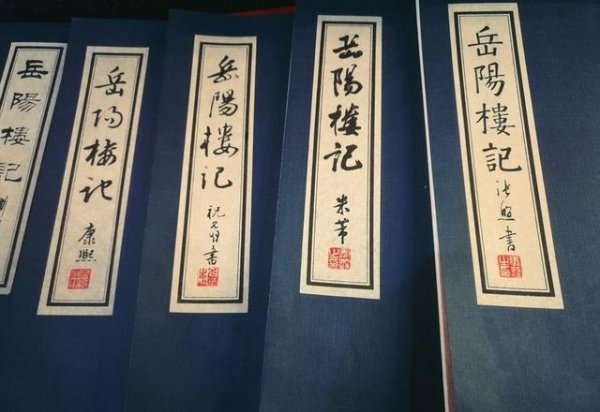 岳陽樓記
岳陽樓記
康熙
岳陽樓記
祝允明書
岳陽樓記
米芾
岳陽樓記
張照書